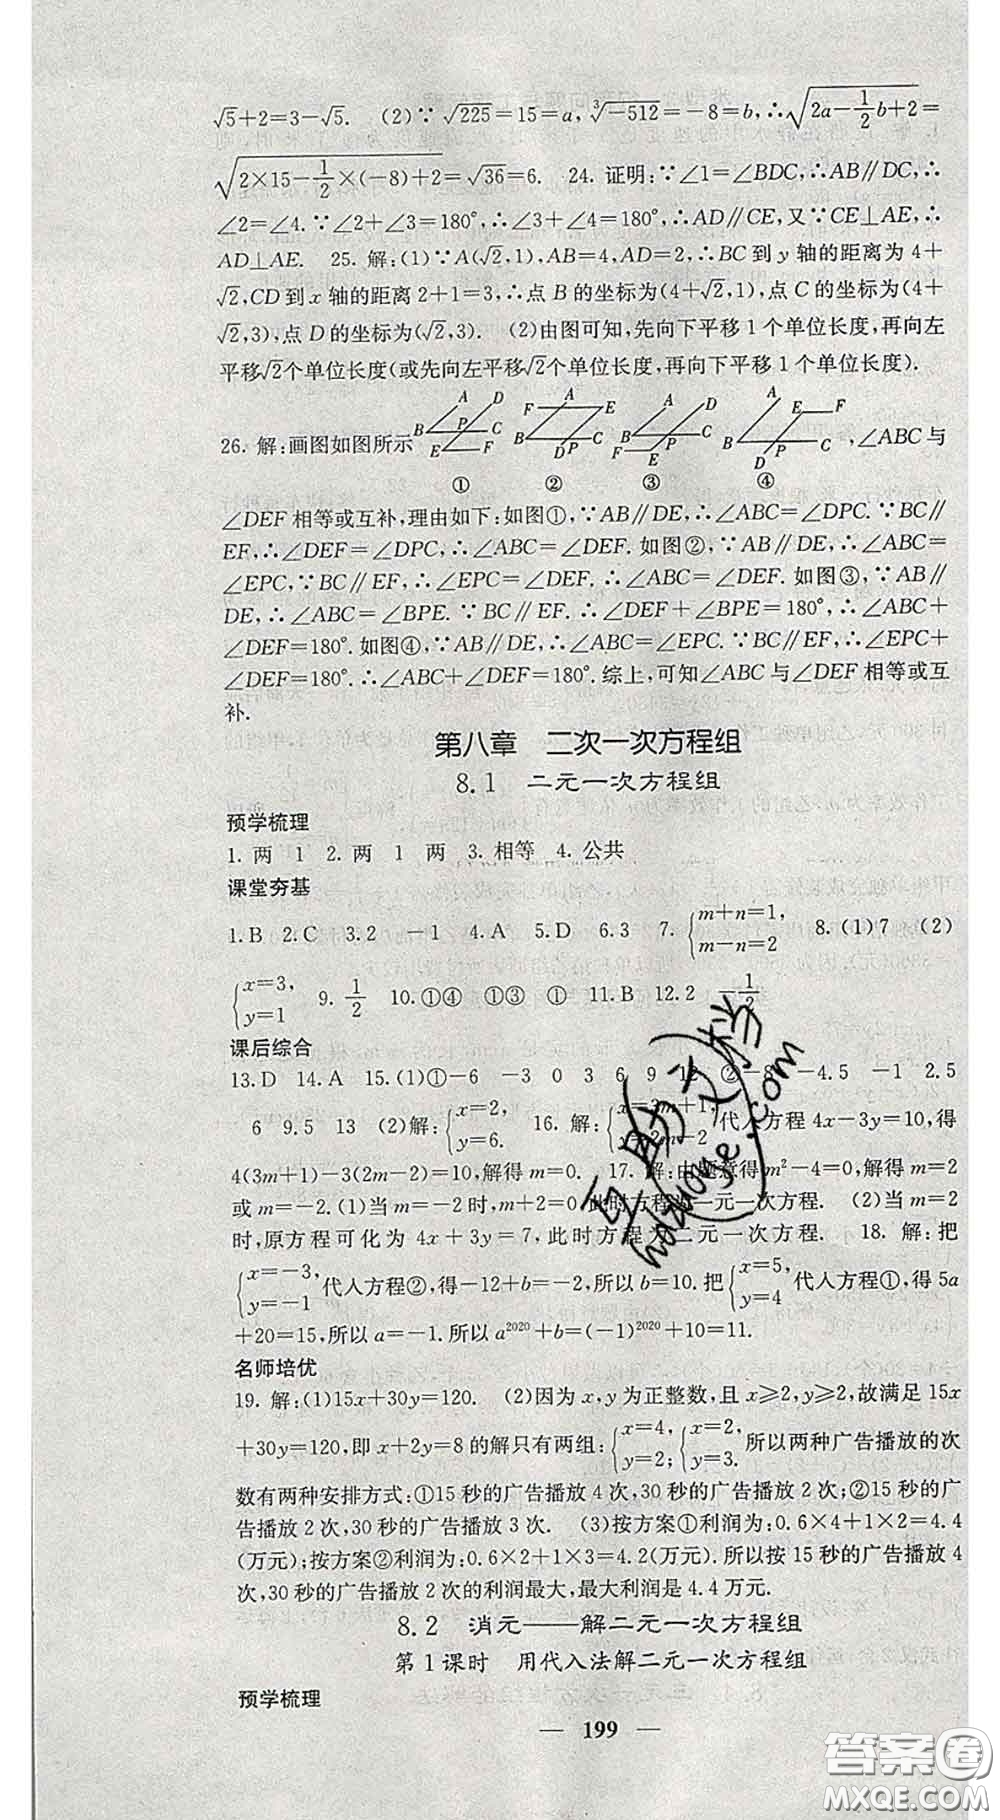 √5+2=3-√5. (2)∵√225=15=a, ∛-512=-8=b,∴√(2a-1/2b+2)=
√(2×15-1/2×(-8)+2)=√36=6. 24. 证明:∵∠1=∠BDC,∴AB∥DC,∴
∠2=∠4.∵∠2+∠3=180°,∴∠3+∠4=180°,∴AD∥CE,又∵CE⊥AE,∴
AD⊥AE. 25. 解:(1)∵A(√2,1),AB=4,AD=2,∴BC到y轴的距离为4+
√2,CD到x轴的距离2+1=3,∴点B的坐标为(4+√2,1),点C的坐标为(4+
√2,3),点D的坐标为(√2,3). (2)由图可知,先向下平移1个单位长度,再向左
平移√2个单位长度(或先向左平移√2个单位长度,再向下平移1个单位长度).
A D F A E A D A E F
26. 解:画图如图所示 B P C E F B D P C B P C F E B P C D ,∠ABC与
① ② ③ ④
∠DEF相等或互补,理由如下:如图①,∵AB∥DE,∴∠ABC=∠DPC.∵BC∥
EF,∴∠DEF=∠DPC,∴∠ABC=∠DEF.如图②,∵AB∥DE,∴∠ABC=
∠EPC,∵BC∥EF,∴∠DEF=∠EPC.∴∠ABC=∠DEF.如图③,∵AB∥
DE,∴∠ABC=∠BPE.∵BC∥EF.∴∠DEF+∠BPE=180°,∴∠ABC+
∠DEF=180°.如图④,∵AB∥DE,∴∠ABC=∠EPC.∵BC∥EF,∴∠EPC+
∠DEF=180°.∴∠ABC+∠DEF=180°.综上,可知∠ABC与∠DEF相等或互
补.
第八章 二次一次方程组
8.1 二元一次方程组
预学梳理
1. 两 1 2. 两 1 两 3. 相等 4. 公共
课堂夯基
1.B 2.C 3.2 -1 4.A 5.D 6.3 7. {m+n=1, m-n=2 8.(1)7 (2)
{x=3, y=1 9. 1/2 10.①④ ①③ ① 11.B 12.2 -1/2
课后综合
13.D 14.A 15.(1)①-6 -3 0 3 6 9 12 ②-8 -4.5 -1 2.5
6 9.5 13 (2)解:{x=2, y=6. 16. 解:{x=3m+1, y=2m-2 代人方程4x-3y=10,得
4(3m+1)-3(2m-2)=10,解得m=0. 17. 解:由题意得m²-4=0,解得m=2
或m=-2.(1)当m=-2时,m+2=0此时方程为一元一次方程. (2)当m=2
时,原方程可化为4x+3y=7,此时方程为二元一次方程. 18. 解:把
{x=-3, y=-1 代人方程②,得-12+b=-2,所以b=10.把{x=5, y=4 代人方程①,得5a
+20=15,所以a=-1.所以a²⁰²⁰+b=(-1)²⁰²⁰+10=11.
名师培优
19. 解:(1)15x+30y=120. (2)因为x,y为正整数,且x≥2,y≥2,故满足15x
+30y=120,即x+2y=8的解只有两组:{x=4, y=2; {x=2, y=3. 所以两种广告播放的次
数有两种安排方式:①15秒的广告播放4次,30秒的广告播放2次;②15秒的广
告播放2次,30秒的广告播放3次. (3)按方案①利润为:0.6×4+1×2=4.4
(万元);按方案②利润为:0.6×2+1×3=4.2(万元).所以按15秒的广告播放4
次,30秒的广告播放2次的利润最大,最大利润是4.4万元.
8.2 消元——解二元一次方程组
第1课时 用代入法解二元一次方程组
预学梳理
— 199 —
答案圈
MXQE.COM